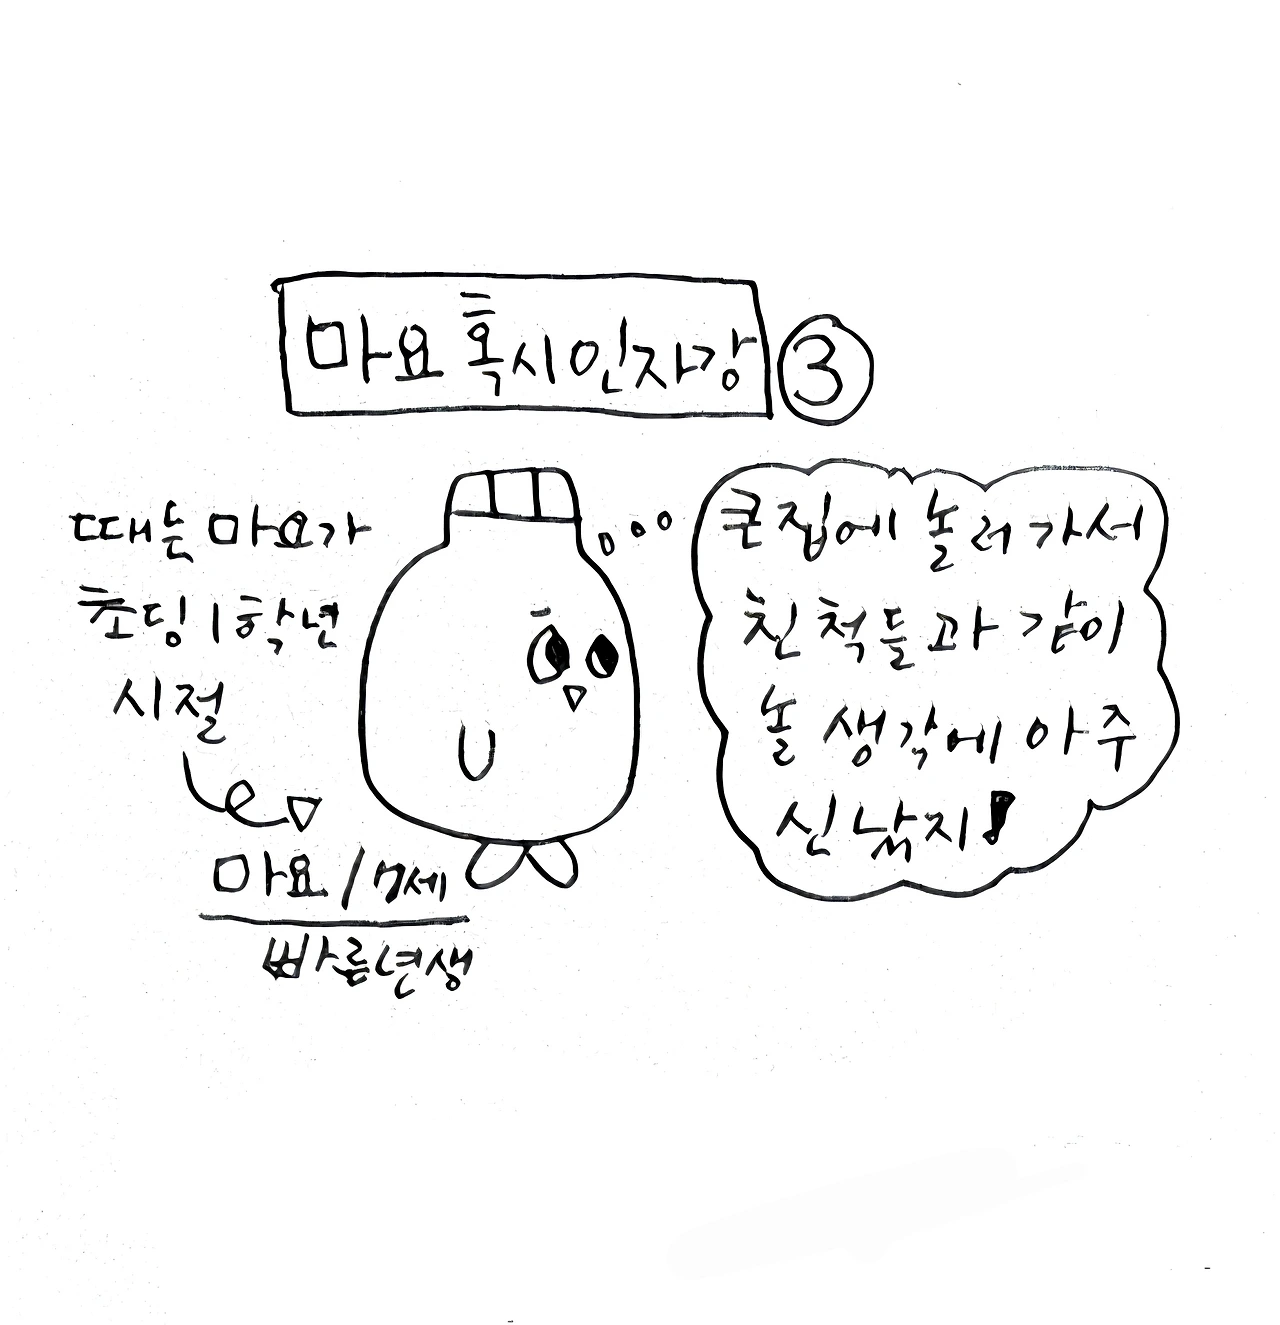 마요 혹시인자강 ③
때는 마요가
초딩 1학년
시절
마요 / 7세
빠름년생
큰집에 놀러가서
친척들과 같이
놀 생각에 아주
신낡지!